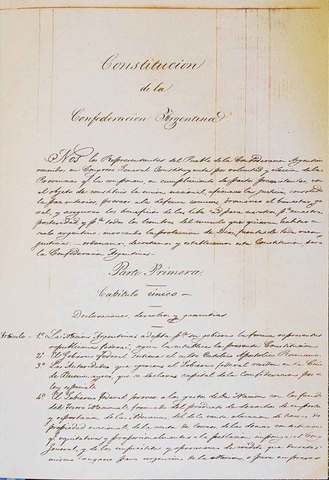 Constitucion
de la
Confederacion Argentina
Nos los Representantes del Pueblo de la Confederacion Argentina
reunidos en Congreso General Constituyente por voluntad y eleccion de las
Provincias que la componen, en cumplimiento de pactos preexistentes, con
el objeto de constituir la union nacional, afianzar la justicia, consolidar
la paz interior, proveer a la defensa comun, promover el bienestar gene
ral, y asegurar los beneficios de la libertad para nosotros pª nuestra
posteridad y pª todos los hombres del mundo que quieran habitar en el
suelo argentino: invocando la proteccion de Dios, fuente de toda razon y
justicia: ordenamos, decretamos y establecemos esta Constitucion para
la Confederacion Argentina.
Parte Primera.
Capitulo único
Declaraciones, derechos y garantias
Articulo 1º La Nacion Argentina adopta pª su gobierno la forma representativa
republicana federal; segun la establece la presente Constitucion
2º El Gobierno Federal sostiene el culto Catolico Apostolico Romano.
3º Las Autoridades que ejercen el Gobierno federal residen en la Ciudad
de Buenos Ayres, que se declara capital de la Confederacion por una
ley especial.
4º El Gobierno Federal provee a los gastos de la Nacion con los fondos
del Tesoro Nacional, formado del producto de derechos de importacion
y esportacion de las Aduanas, del de la venta o locacion de tierras de
propiedad nacional, de la renta de Correos, de las demas contribuciones
que equitativa y proporcionalmente a la poblacion imponga el Congreso
General, y de los emprestitos y operaciones de credito que decrete el
mismo Congreso para urgencias de la Nacion o para empresas